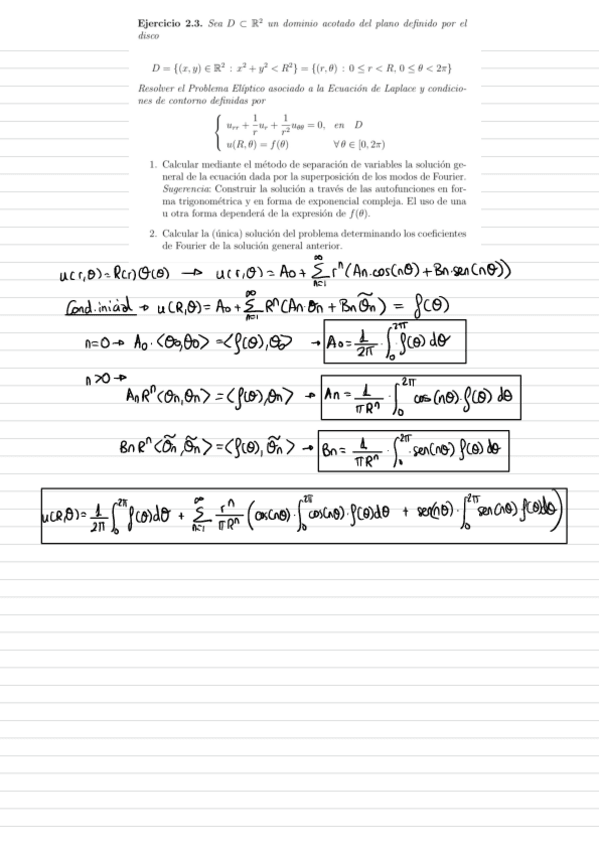 Ejercicio 2.3. Sea D ⊂ ℝ² un dominio acotado del plano definido por el
disco
D = {(x, y) ∈ ℝ² : x² + y² < R²} = {(r, θ) : 0 ≤ r < R, 0 ≤ θ < 2π}
Resolver el Problema Elíptico asociado a la Ecuación de Laplace y condicio-
nes de contorno definidas por
{ u_rr + 1/r u_r + 1/r² u_θθ = 0, en D
u(R, θ) = f(θ) ∀ θ ∈ [0, 2π)
1. Calcular mediante el método de separación de variables la solución ge-
neral de la ecuación dada por la superposición de los modos de Fourier.
Sugerencia: Construir la solución a través de las autofunciones en for-
ma trigonométrica y en forma de exponencial compleja. El uso de una
u otra forma dependerá de la expresión de f(θ).
2. Calcular la (única) solución del problema determinando los coeficientes
de Fourier de la solución general anterior.
u(r,θ) = R(r)Θ(θ) → u(r,θ) = A₀ + ∑_{n=1}^{∞} rⁿ(An·cos(nθ) + Bn·sen(nθ))
Cond. inicial → u(R,θ) = A₀ + ∑_{n=1}^{∞} Rⁿ(An·Θn + BnΘ̃n) = f(θ)
n=0 → A₀·<Θ₀,Θ₀> = <f(θ),Θ₀> → A₀ = 1/2π · ∫₀^{2π} f(θ) dθ
n>0 →
An Rⁿ <Θn,Θn> = <f(θ),Θn> → An = 1/πRⁿ · ∫₀^{2π} cos(nθ)·f(θ) dθ
Bn Rⁿ <Θ̃n,Θ̃n> = <f(θ),Θ̃n> → Bn = 1/πRⁿ · ∫₀^{2π} sen(nθ) f(θ) dθ
u(R,θ) = 1/2π ∫₀^{2π} f(θ)dθ + ∑_{n=1}^{∞} rⁿ/πRⁿ (cos(nθ)·∫₀^{2π} cos(nθ)·f(θ)dθ + sen(nθ)·∫₀^{2π} sen(nθ) f(θ)dθ)